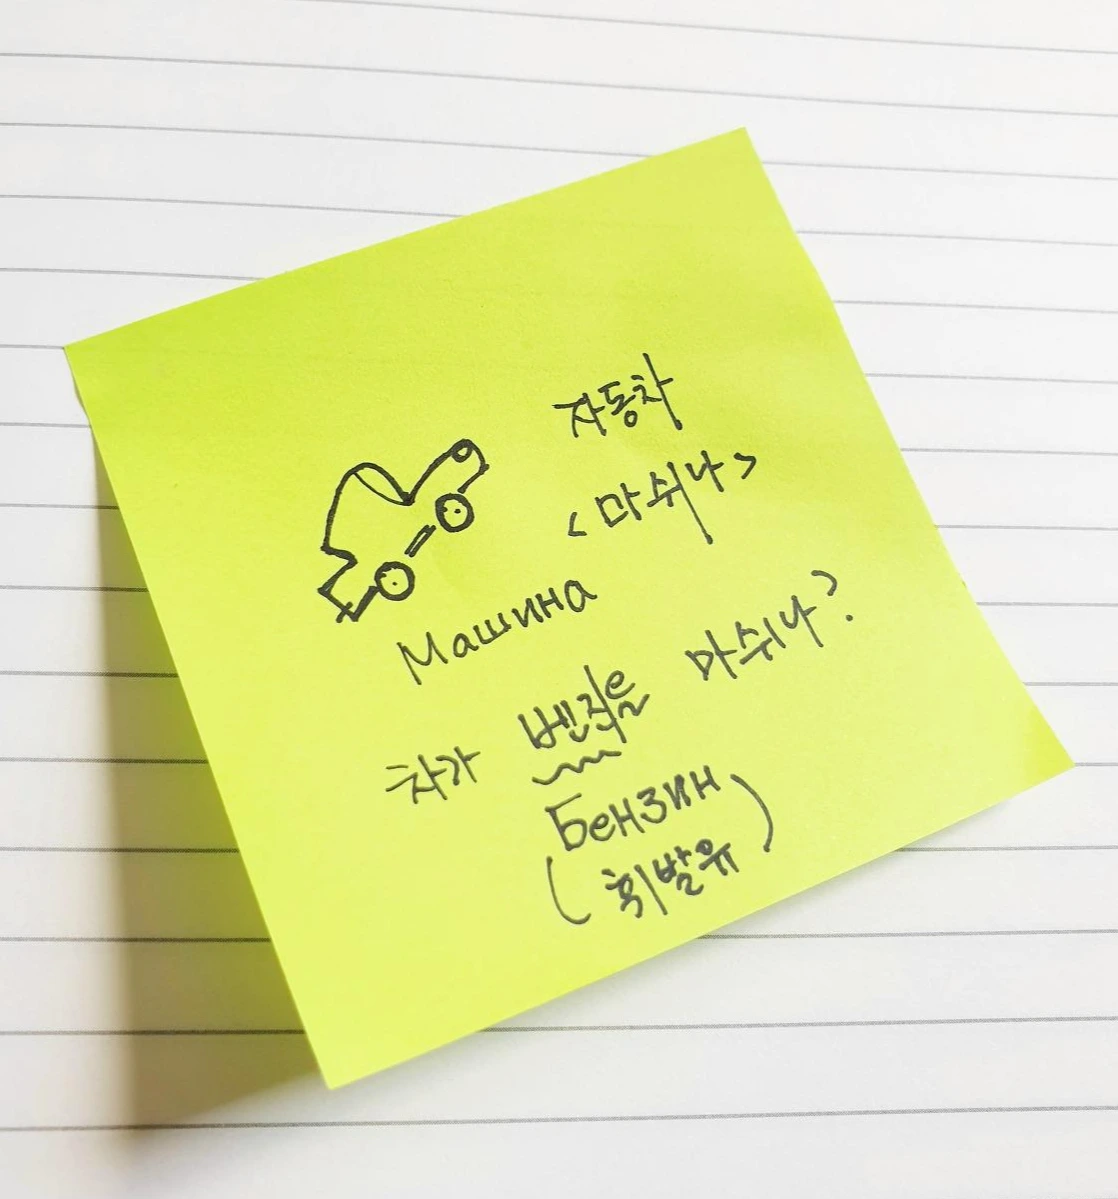 자동차
<마쉬나>
Машина
차가 벤직을 마쉬나?
Бензин
(휘발유)